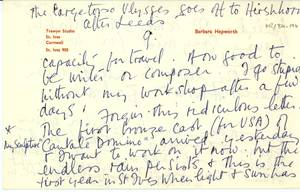 The large torso Ulysses goes off to Hirshhorn
after Leeds
Trewyn Studio
St. Ives
Cornwall
St. Ives 900
9
Barbara Hepworth
capacity for travel. How good to
be writer or composer. I go stupid
without my workshop after a few
days! Forgive this ridiculous letter.
* The first bronze cast (for USA) of
my sculpture "Cantate Domine" arrived yesterday
& I want to work on it now but the
endless rain persists & this is the
first year in St Ives when light & sun has